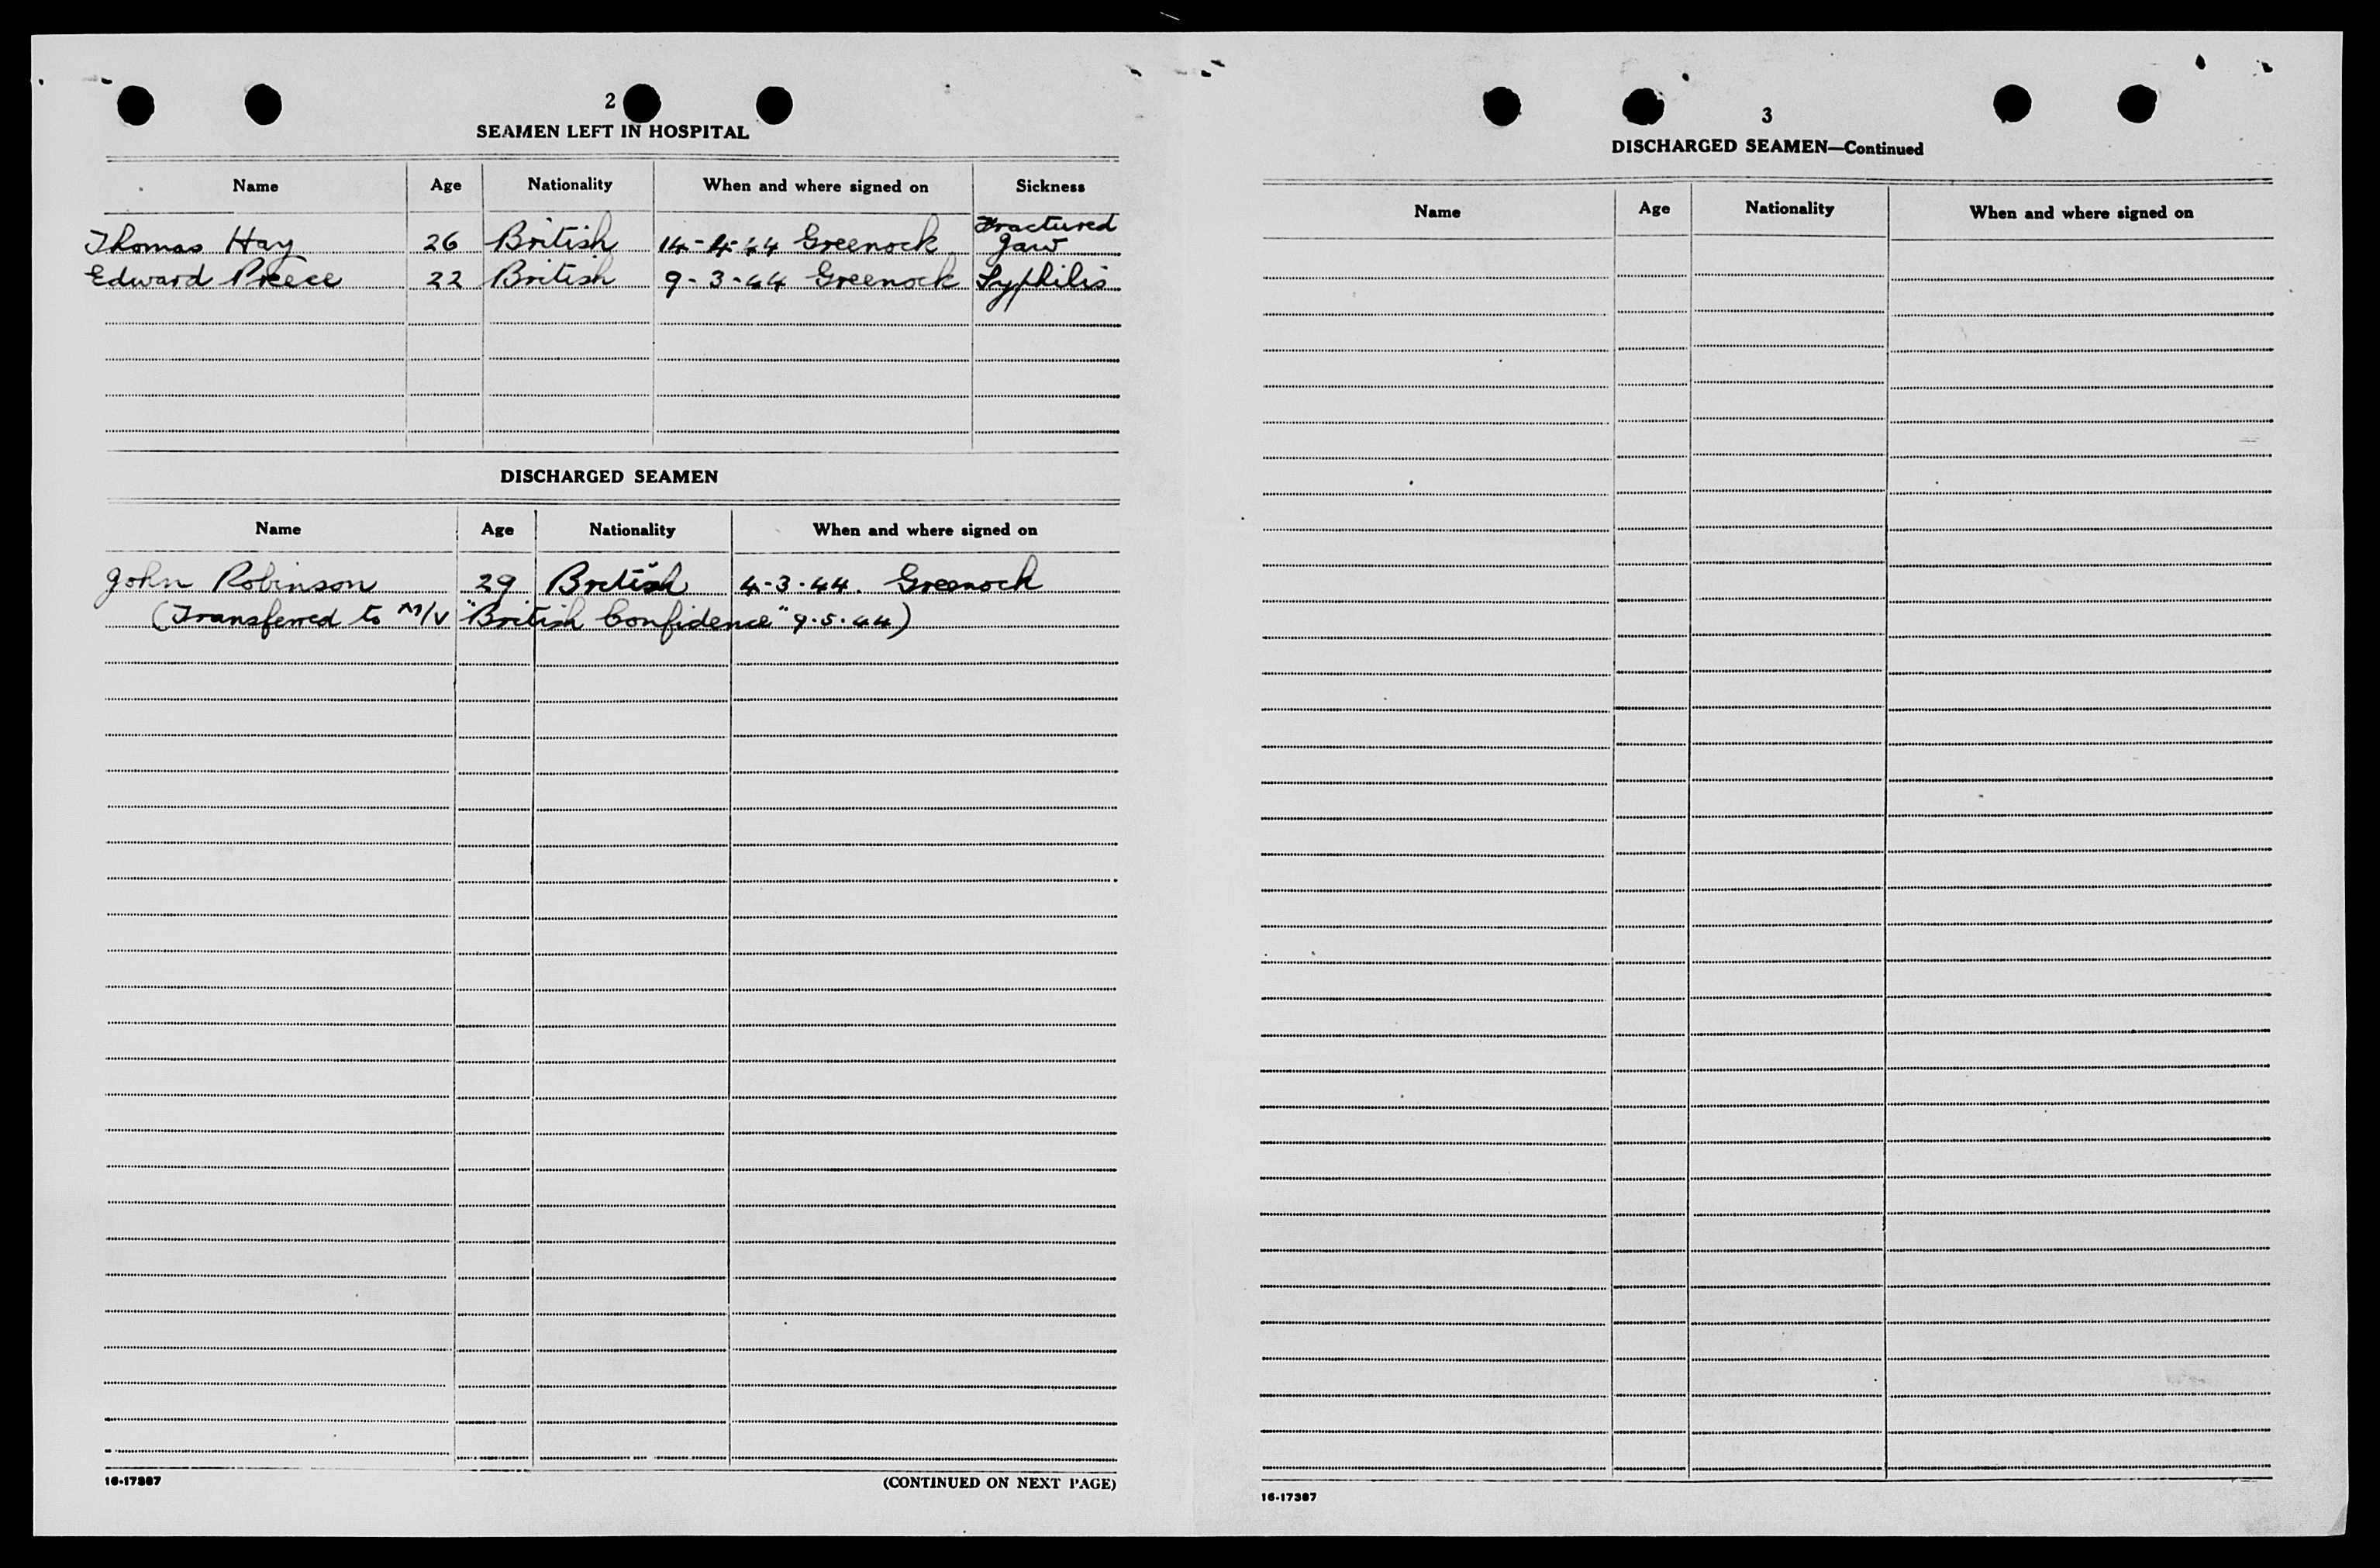 2
SEAMEN LEFT IN HOSPITAL
Name Age Nationality When and where signed on Sickness
Thomas Hay 26 British 14-4-44 Greenock Fractured Jaw
Edward Preece 22 British 9-3-44 Greenock Syphilis
DISCHARGED SEAMEN
Name Age Nationality When and where signed on
John Robinson 29 British 4-3-44. Greenock
(Transferred to M/V "British Confidence" 9.5.44)
16-17387 (CONTINUED ON NEXT PAGE)
3
DISCHARGED SEAMEN—Continued
Name Age Nationality When and where signed on
16-17387